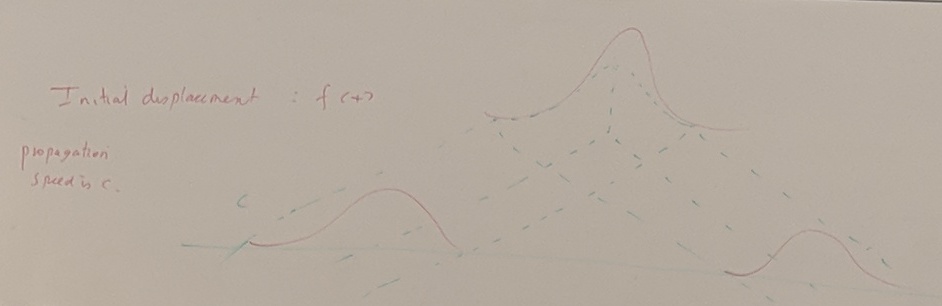 Initial displacement : f(+)
propagation
speed is c.
c